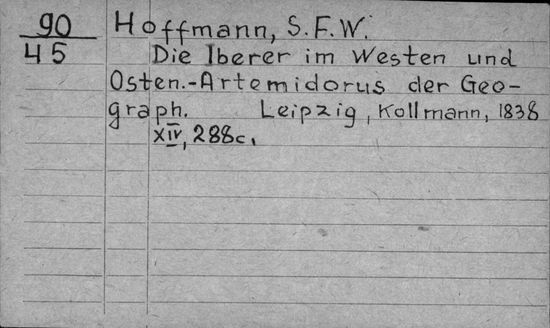 90
45
Hoffmann, S.F.W.
Die Iberer im Westen und
Osten.-Artemidorus der Geo-
graph. Leipzig, Kollmann, 1838
XIV, 288c.